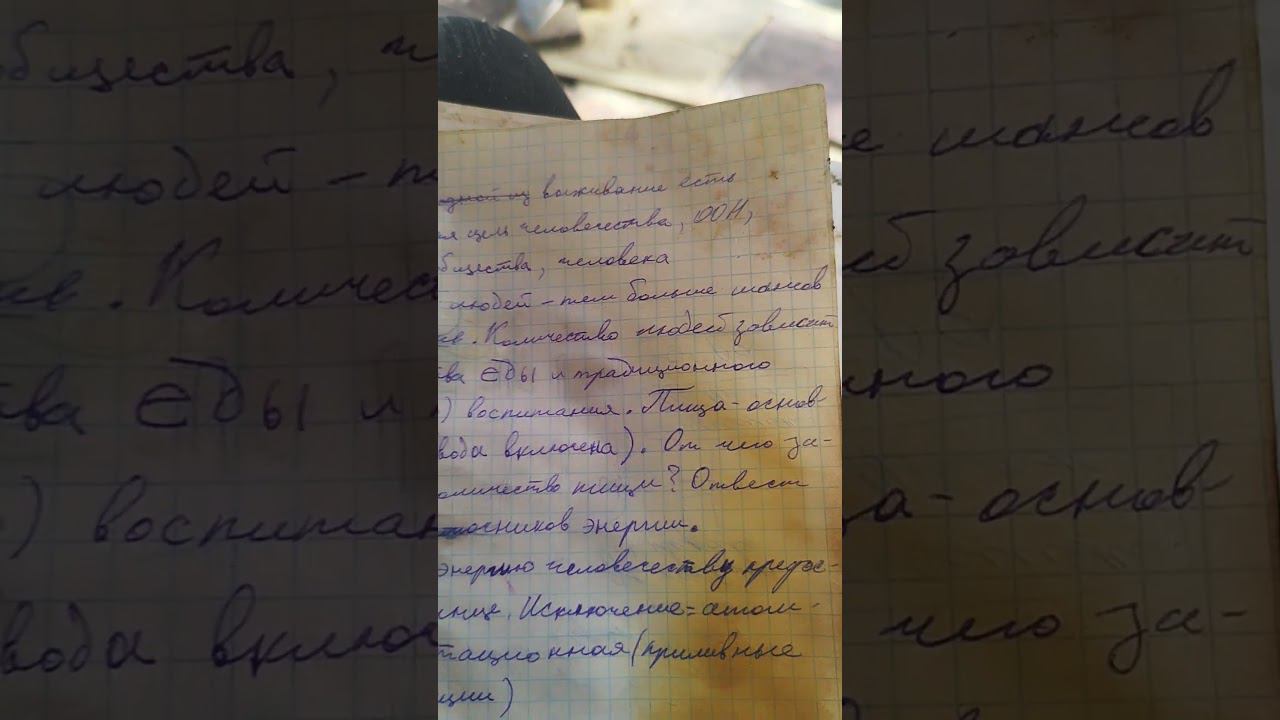 выживание есть
цель человечества, ООН,
бщества, человека
людей - тем больше шансов
ке. Количество людей зависит
ва еды и традиционного
) воспитания. Пища - основ-
вода включена). От чего за-
оличество пищи? Ответ
осников энергии.
энергию человечеству предос-
нце. Исключение = атом-
тационная (приливные
ции)